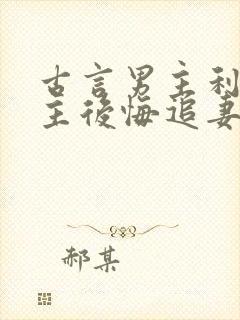 古言男主利
主後悔追妻
郝某